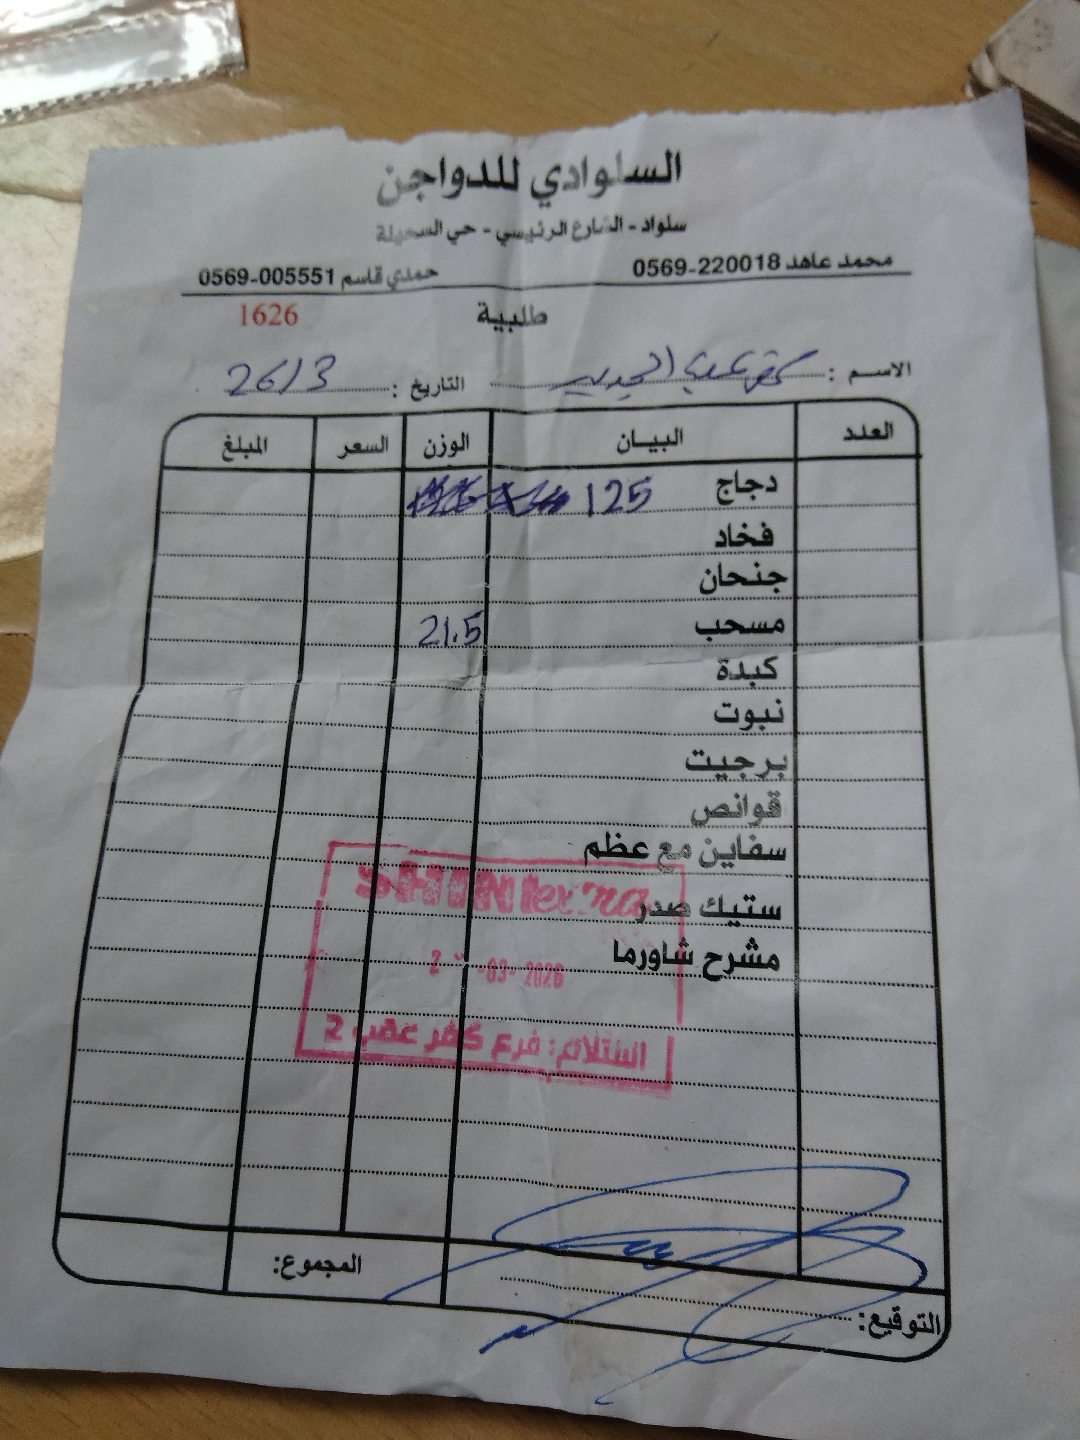 السلوادي للدواجن
سلواد - الشارع الرئيسي - حي السحيلة
محمد عاهد 0569-220018 حمدي قاسم 0569-005551
طلبية 1626
الاسم : كفر عقب الجديد التاريخ : 26/3
العدد البيان الوزن السعر المبلغ
دجاج 125
فخاد
جنحان
مسحب 21.5
كبدة
نبوت
برجيت
قوانص
سفاين مع عظم
SHINI extra
ستيك صدر
مشرح شاورما
-03-2026
استلام: فرع كفر عقب 2
المجموع:
التوقيع: